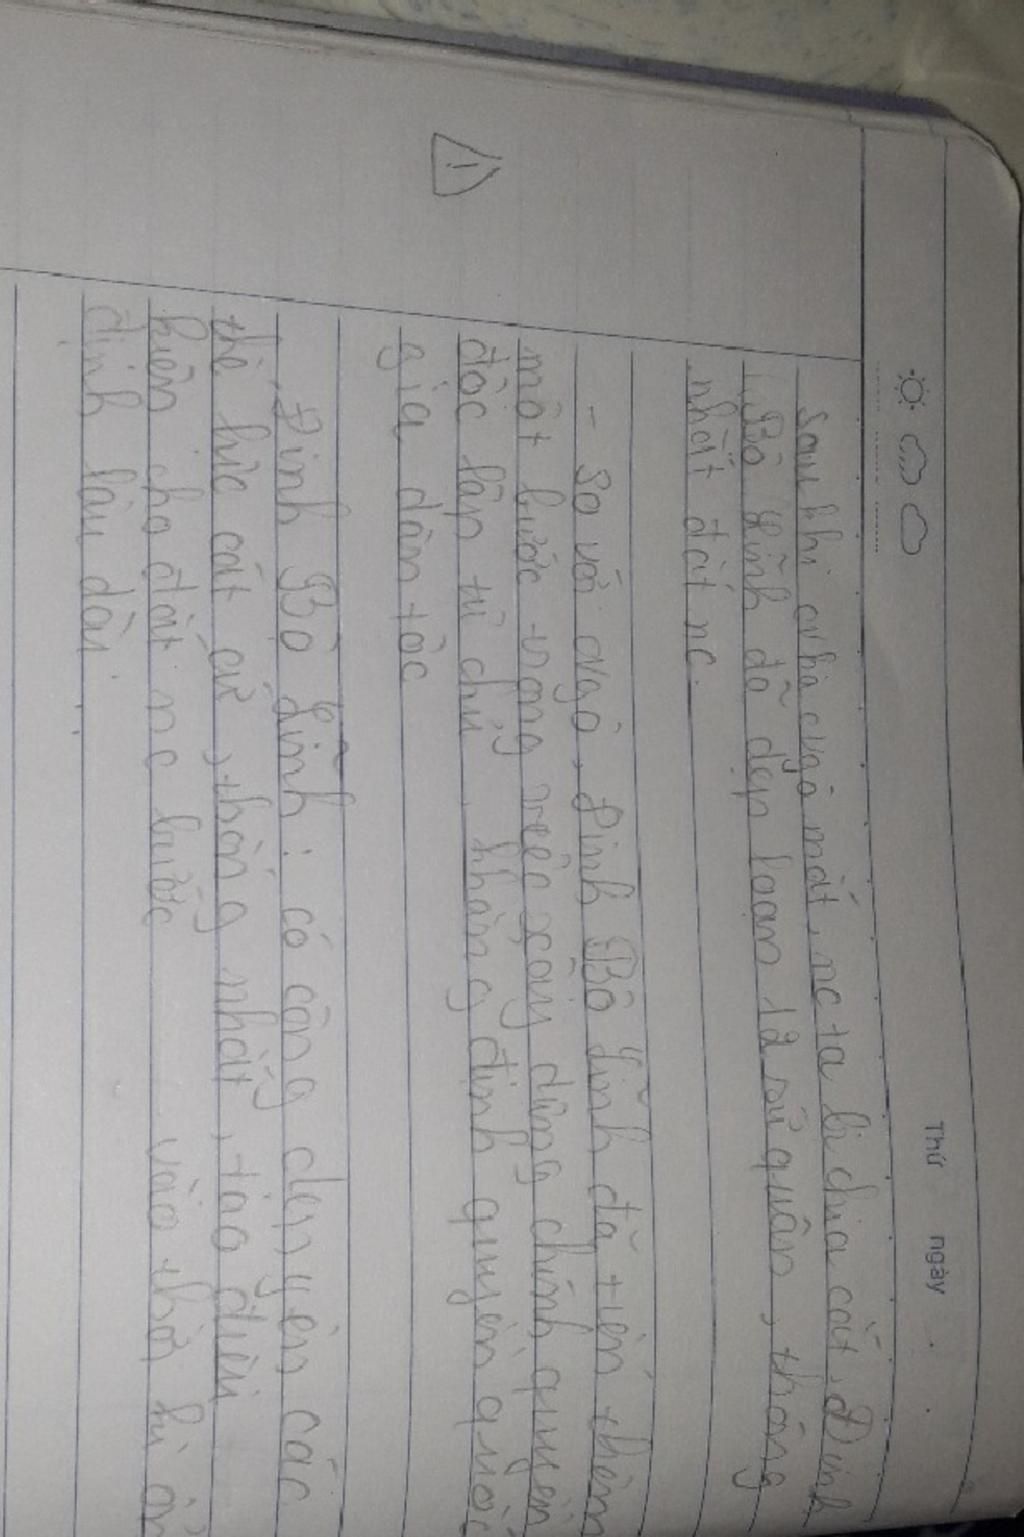 Thứ ngày
sau khi nhà ngô mất, nc ta bị chia cắt, Đinh
Bộ Lĩnh đã dẹp loạn 12 sứ quân, thống
nhất đất nc.
- So với ngô, Đinh Bộ Lĩnh đã tiến thêm
một bước trong việc xây dựng chính quyền
độc lập tự chủ, khẳng định quyền quốc
gia dân tộc
Đinh Bộ Lĩnh: có công dẹp yên các
thế lực cát cứ, thống nhất, tạo điều
kiện cho đất nc bước vào thời kì ổn
định lâu dài.